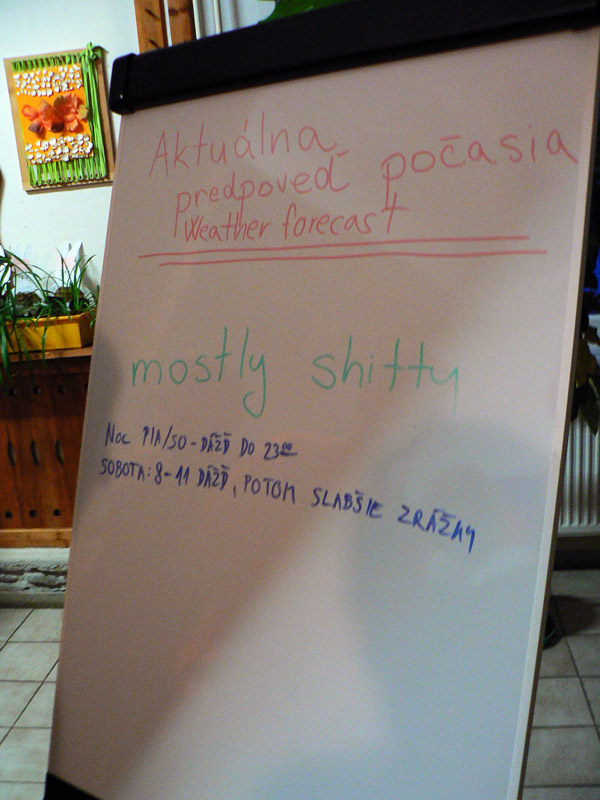 Aktuálna
predpoveď počasia
Weather forecast
mostly shitty
NOC PIA/SO - DÁŽĎ DO 23⁰⁰
SOBOTA: 8-11 DÁŽĎ, POTOM SLABŠIE ZRÁŽKY